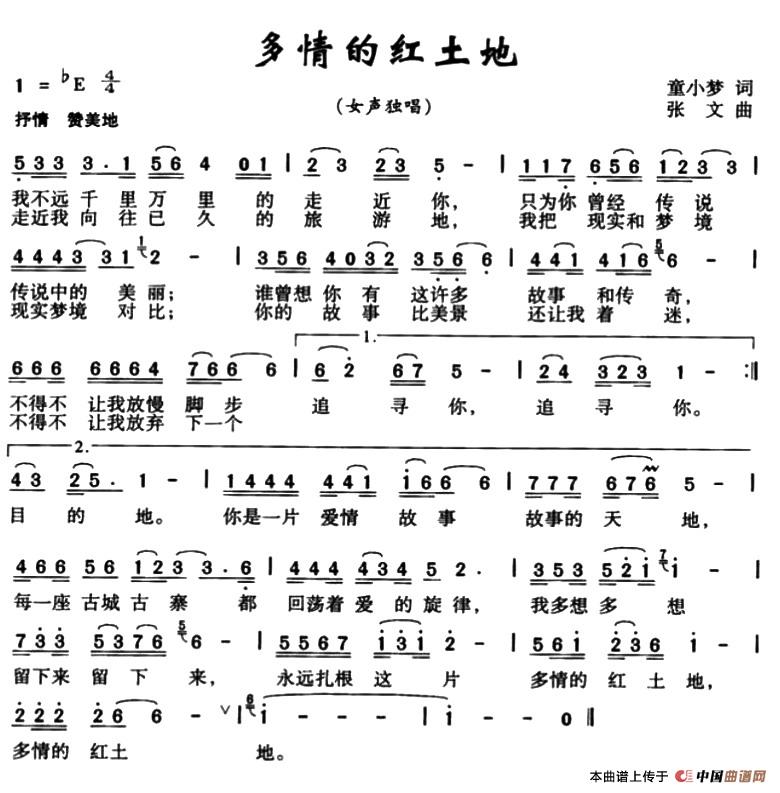 多情的红土地
1 = ♭E 4/4
(女声独唱)
童小梦 词
张 文 曲
抒情 赞美地
5 3 3 3 · 1 5 6 4 0 1 | 2 3 2 3 5 - | 1 1 7 6 5 6 1 2 3 3 |
我不远千里万里的走近你，只为你曾经传说
走近我向往已久的旅游地，我把现实和梦境
4 4 4 3 3 1 1 2 - | 3 5 6 4 0 3 2 3 5 6 6 | 4 4 1 4 1 6 5 6 - |
传说中的美丽；谁曾想你有这许多故事和传奇，
现实梦境对比；你的故事比美景还让我着迷，
1.
6 6 6 6 6 6 4 7 6 6 6 | 6 2 6 7 5 - | 2 4 3 2 3 1 - :||
不得不让我放慢脚步追寻你，追寻你。
不得不让我放弃下一个
2.
4 3 2 5 · 1 - | 1 4 4 4 4 4 1 1 6 6 6 | 7 7 7 6 7 6 5 - |
目的地。你是一片爱情故事故事的天地，
4 6 6 5 6 1 2 3 3 · 6 | 4 4 4 4 3 4 5 2 · | 3 5 3 5 2 1 7 1 - |
每一座古城古寨都回荡着爱的旋律，我多想多想
7 3 3 5 3 7 6 5 6 - | 5 5 6 7 1 3 1 2 - | 5 6 1 2 3 6 6 - |
留下来留下来，永远扎根这片多情的红土地，
2 2 2 2 6 6 - ∨ | 6 1 - - - | 1 - - 0 ||
多情的红土地。
本曲谱上传于 中国曲谱网